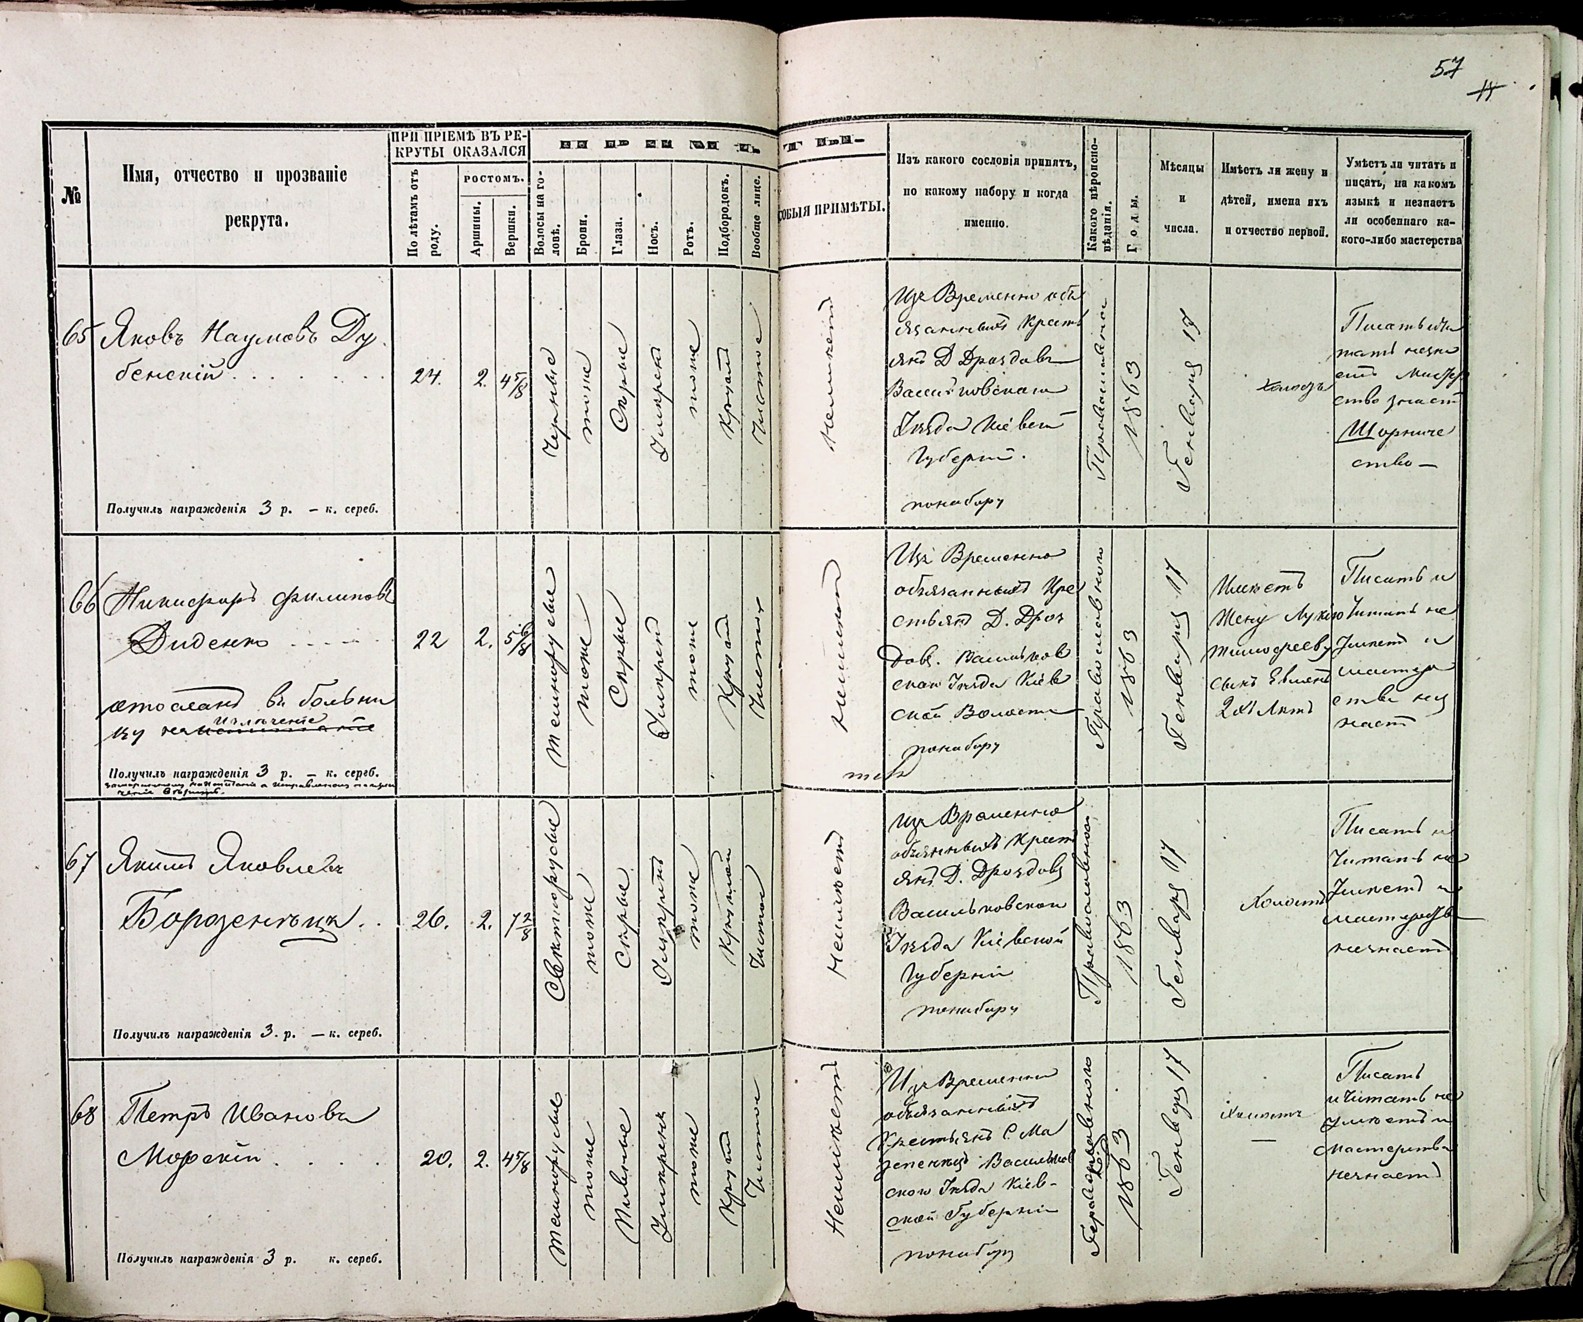 57
№
Имя, отчество и прозваніе
рекрута.
ПРИ ПРІЕМѢ ВЪ РЕ-
КРУТЫ ОКАЗАЛСЯ
По лѣтамъ отъ
роду.
РОСТОМЪ.
Аршины.
Вершки.
Волосы на го-
ловѣ.
Брови.
Глаза.
Носъ.
Ротъ.
Подбородокъ.
Вообще лице.
ОСОБЫЯ ПРИМѢТЫ.
Изъ какого сословія принятъ,
по какому набору и когда
именно.
Какого вѣроиспо-
вѣданія.
Годы.
Мѣсяцы
и
числа.
Имѣетъ ли жену и
дѣтей, имена ихъ
и отчество первой.
Умѣетъ ли читать и
писать, на какомъ
языкѣ и незнаетъ
ли особеннаго ка-
кого-либо мастерства
65
Яковъ Наумовъ Ду
бенскій
24.
2.
4 5/8
Черные
тоже
Сѣрые
Умѣрен
тоже
Кругл
Чистое
Неимѣетъ
Изъ Временно обя
занныхъ Кресть
янъ Д Дроздовъ
Васильковскаго
Уѣзда Кіевск
Губерніи.
по набору
Православнаго
1863
Генваря 17
Холостъ
Писать и чи
тать неумѣ
етъ Мастер
ство знаетъ
Шорниче
ство —
Получилъ награжденія 3 р. — к. сереб.
66
Никифоръ Филиповъ
Диденко
отосланъ въ больни
цу на излеченіе
22
2.
5 6/8
Темнорусые
тоже
Сѣрые
Умѣрен
тоже
Кругл
Чистое
Неимѣетъ
Изъ Временно
обязанныхъ Кре
стьянъ Д. Дроз
довъ. Васильков
скаго Уѣзда Кіев
ской Волости
по набору
Православнаго
1863
Генваря 17
Имѣетъ
Жену Лукію
Тимофееву
сынъ Евмен
2хъ Лѣтъ
Писать и
Читать не
Умѣетъ и
мастер
ства не
знаетъ
Получилъ награжденія 3 р. — к. сереб.
67
Якимъ Яковлевъ
Борзенецъ
26.
2.
7 2/8
Свѣтлорусые
тоже
Сѣрые
Умѣренъ
тоже
Круглой
Чистое
Неимѣетъ
Изъ Временно
обязанныхъ Крест
янъ Д. Дроздовъ
Васильковскаго
Уѣзда Кіевской
Губерніи
по набору
Православнаго
1863
Генваря 17
Холостъ
Писать и
Читать не
Умѣетъ и
мастерства
незнаетъ
Получилъ награжденія 3. р. — к. сереб.
68
Петръ Ивановъ
Морскій
20.
2.
4 5/8
Темнорусые
тоже
Пивные
Умѣренъ
тоже
Кругл
Чистое
Неимѣетъ
Изъ Временно
обязанныхъ
Крестьянъ С. Ма
Васильков
скаго Уѣзда Кіев-
ской Губерніи
по набору
Православнаго
1863
Генваря 17
Холостъ
Писать
и Читать не
Умѣетъ и
мастерства
незнаетъ
Получилъ награжденія 3 р. к. сереб.